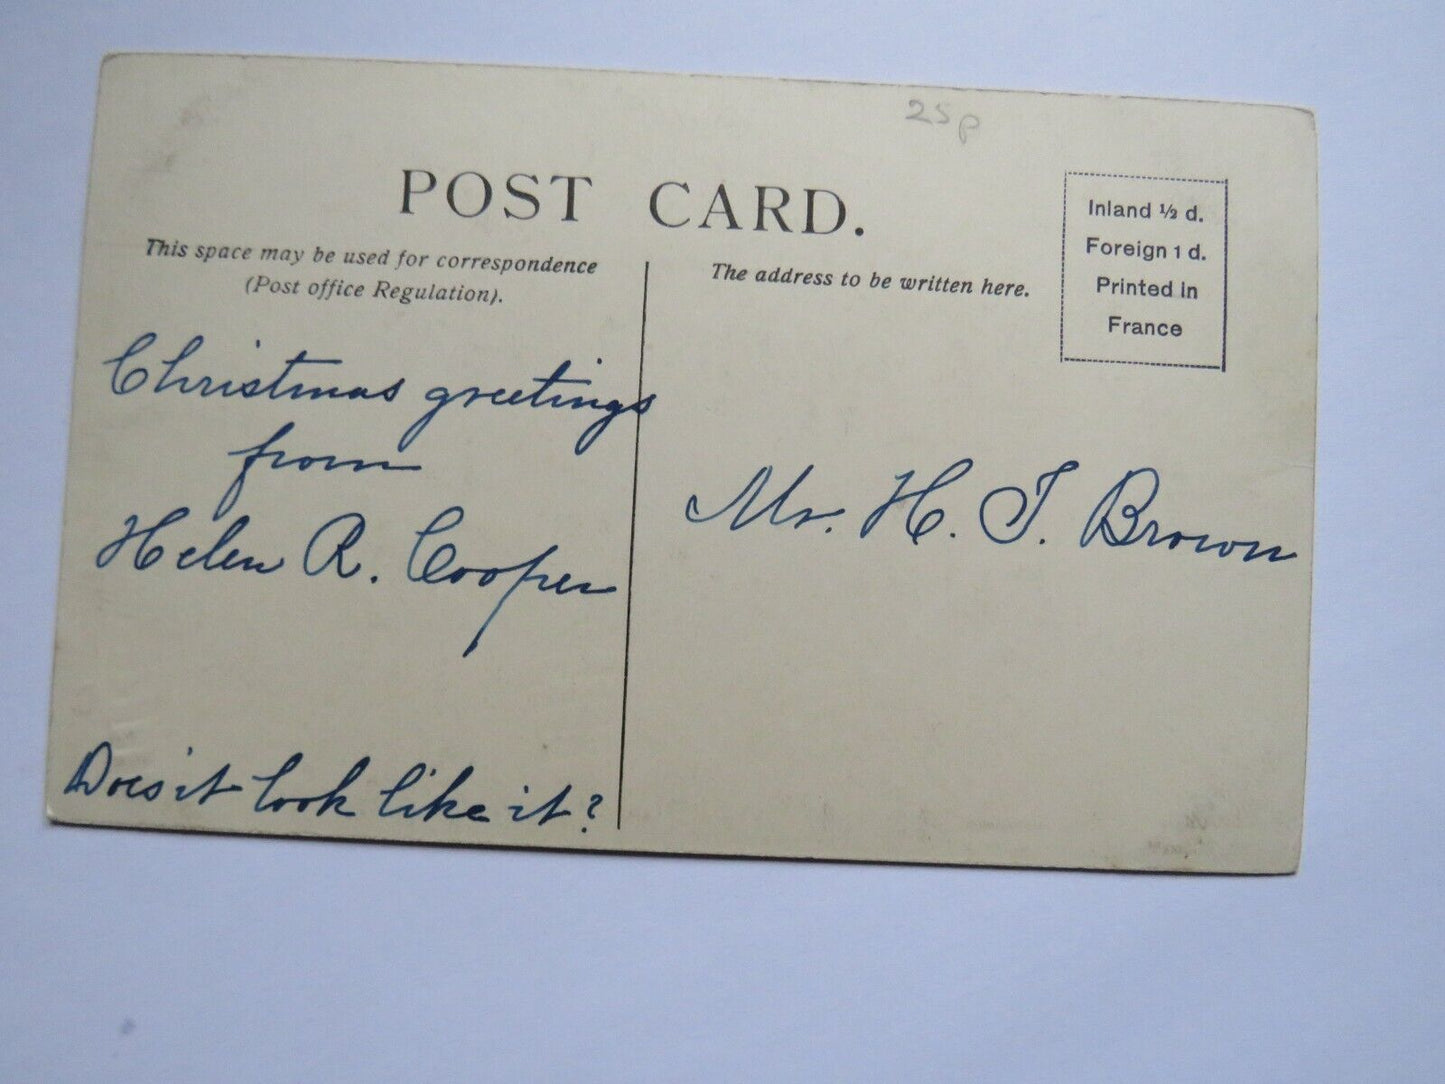 25p
POST CARD.
This space may be used for correspondence
(Post office Regulation).
The address to be written here.
Inland ½ d.
Foreign 1 d.
Printed in
France
Christmas greetings
from
Helen R. Cooper
Does it look like it?
Mr. H. T. Brown